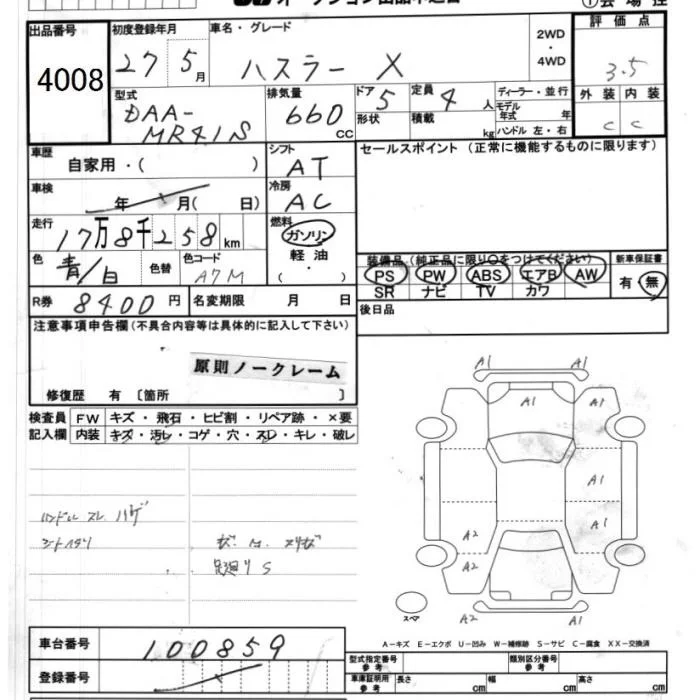 出品番号 初度登録年月 車名・グレード 2WD・4WD 評価点
4008 27 5月 ハスラー X 3.5
型式 排気量 ドア 定員 ディーラー・並行 外装 内装
DAA-MR41S 660cc 5 4人 モデル年式 年 C C
形状 積載 kg ハンドル 左・右
車歴 シフト セールスポイント (正常に機能するものに限ります)
自家用・( ) AT
車検 冷房
年 月( 日) AC
走行 燃料
17万8千258km ガソリン
色 色替 色コード 軽油
青/白 A7M ・( )
装備品(純正品に限り○をつけてください) 新車保証書
PS PW ABS エアB AW 有・無
SR ナビ TV カワ
R券 8400円 名変期限 月 日 後日品
注意事項申告欄(不具合内容等は具体的に記入して下さい)
原則ノークレーム
修復歴 有 〔箇所 〕
検査員 FW キズ・飛石・ヒビ割・リペア跡・×要
記入欄 内装 キズ・汚レ・コゲ・穴・スレ・キレ・破レ
ハンドル スレ ハゲ
シートヘタリ
足廻り S
A1 A1
A1 A1
A1
A1
A2
A2
A2 A1
スペア
A-キズ E-エクボ U-凹み W-補修跡 S-サビ C-腐食 XX-交換済
車台番号 100859
登録番号
型式指定番号 参考 類別区分番号 参考
車庫証明用 参考 長さ cm 幅 cm 高さ cm